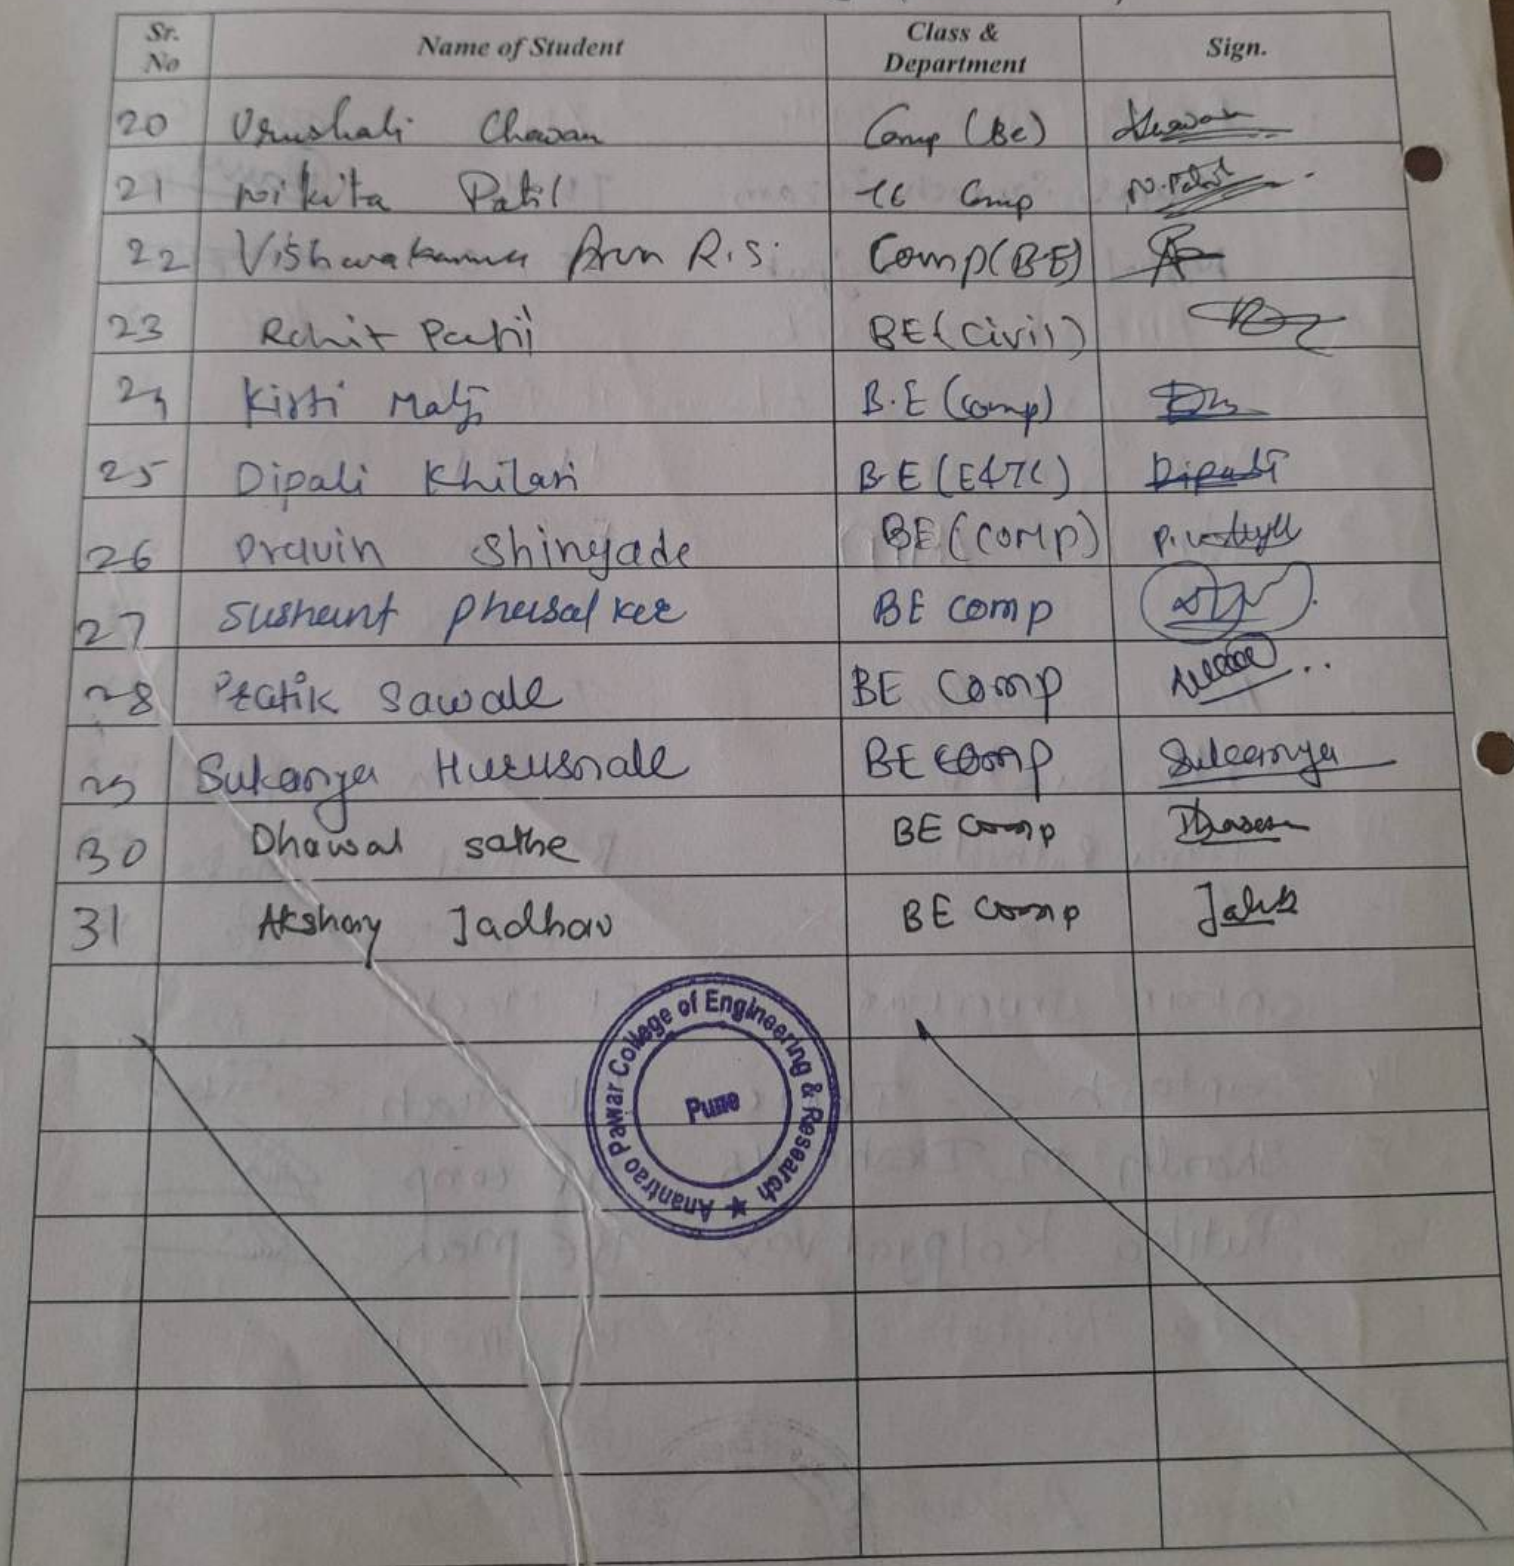 Sr. No Name of Student Class & Department Sign.
20 Vrushali Chavan Comp (Be)
21 Nikita Patil Comp N.Patil
22 Vishwakarma Arun R.S. Comp(B.E)
23 Rohit Patil BE(Civil)
24 Kirti Mali B.E (Comp)
25 Dipali Khilari B.E (E&TC) Dipali
26 Pravin Shingade BE(COMP)
27 Sushant BE comp
28 Pratik Sawale BE Comp
29 Sukanya BE comp Sukanya
30 Dhawal sathe BE Comp
31 Akshay Jadhav BE Comp
Anantrao Pawar College of Engineering & Research ★
Pune